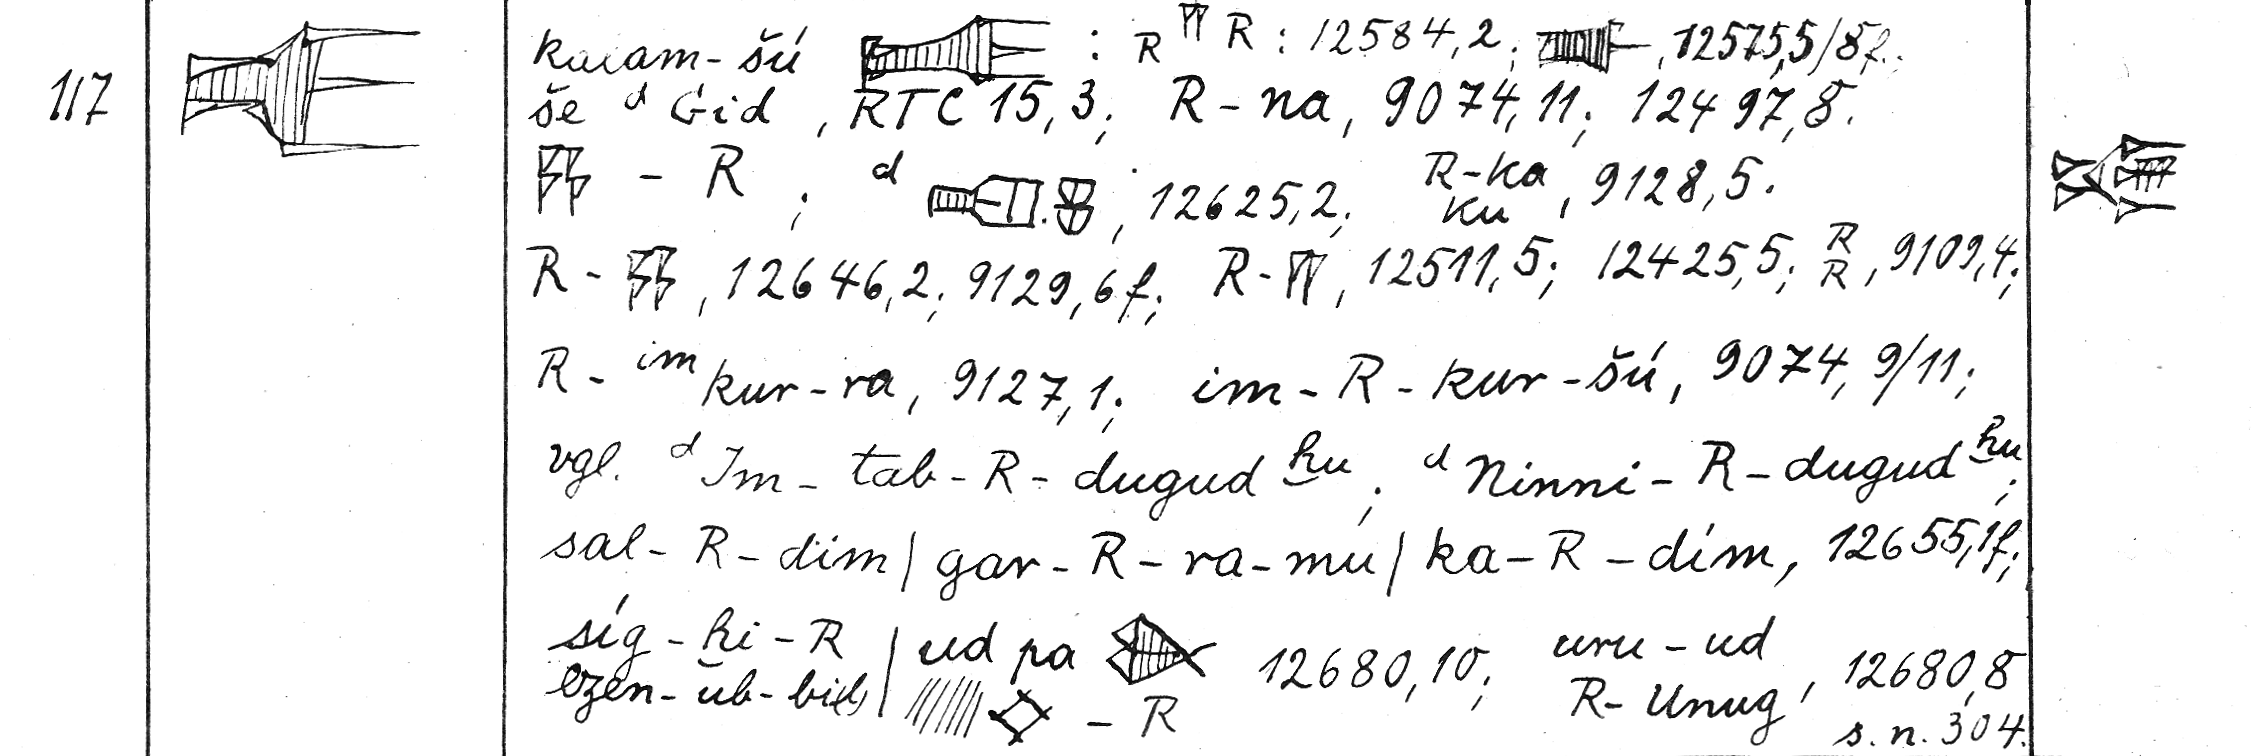 117 karam-šú : R R : 12584,2; , 12575,5/8f.
še ᵈ Gíd , RTC 15,3; R-na, 9074,11; 12497,8.
- R ; ᵈ , 12625,2; R-ka ku , 9128,5.
R- , 12646,2; 9129,6f; R- , 12511,5; 12425,5; R R , 9109,4;
R- ⁱᵐ kur-ra, 9127,1; im-R-kur-šú, 9074, 9/11;
vgl. ᵈ Im-tab-R-dugud ḫu ; ᵈ Ninni-R-dugud ḫu ;
sal-R-dím | gar-R-ra-mu | ka-R-dím, 12655,1f;
síg-ḫi-R | ud pa 12680,10; uru-ud , 12680,8
ezen-ub- - R R-Unug
s. n. 304.